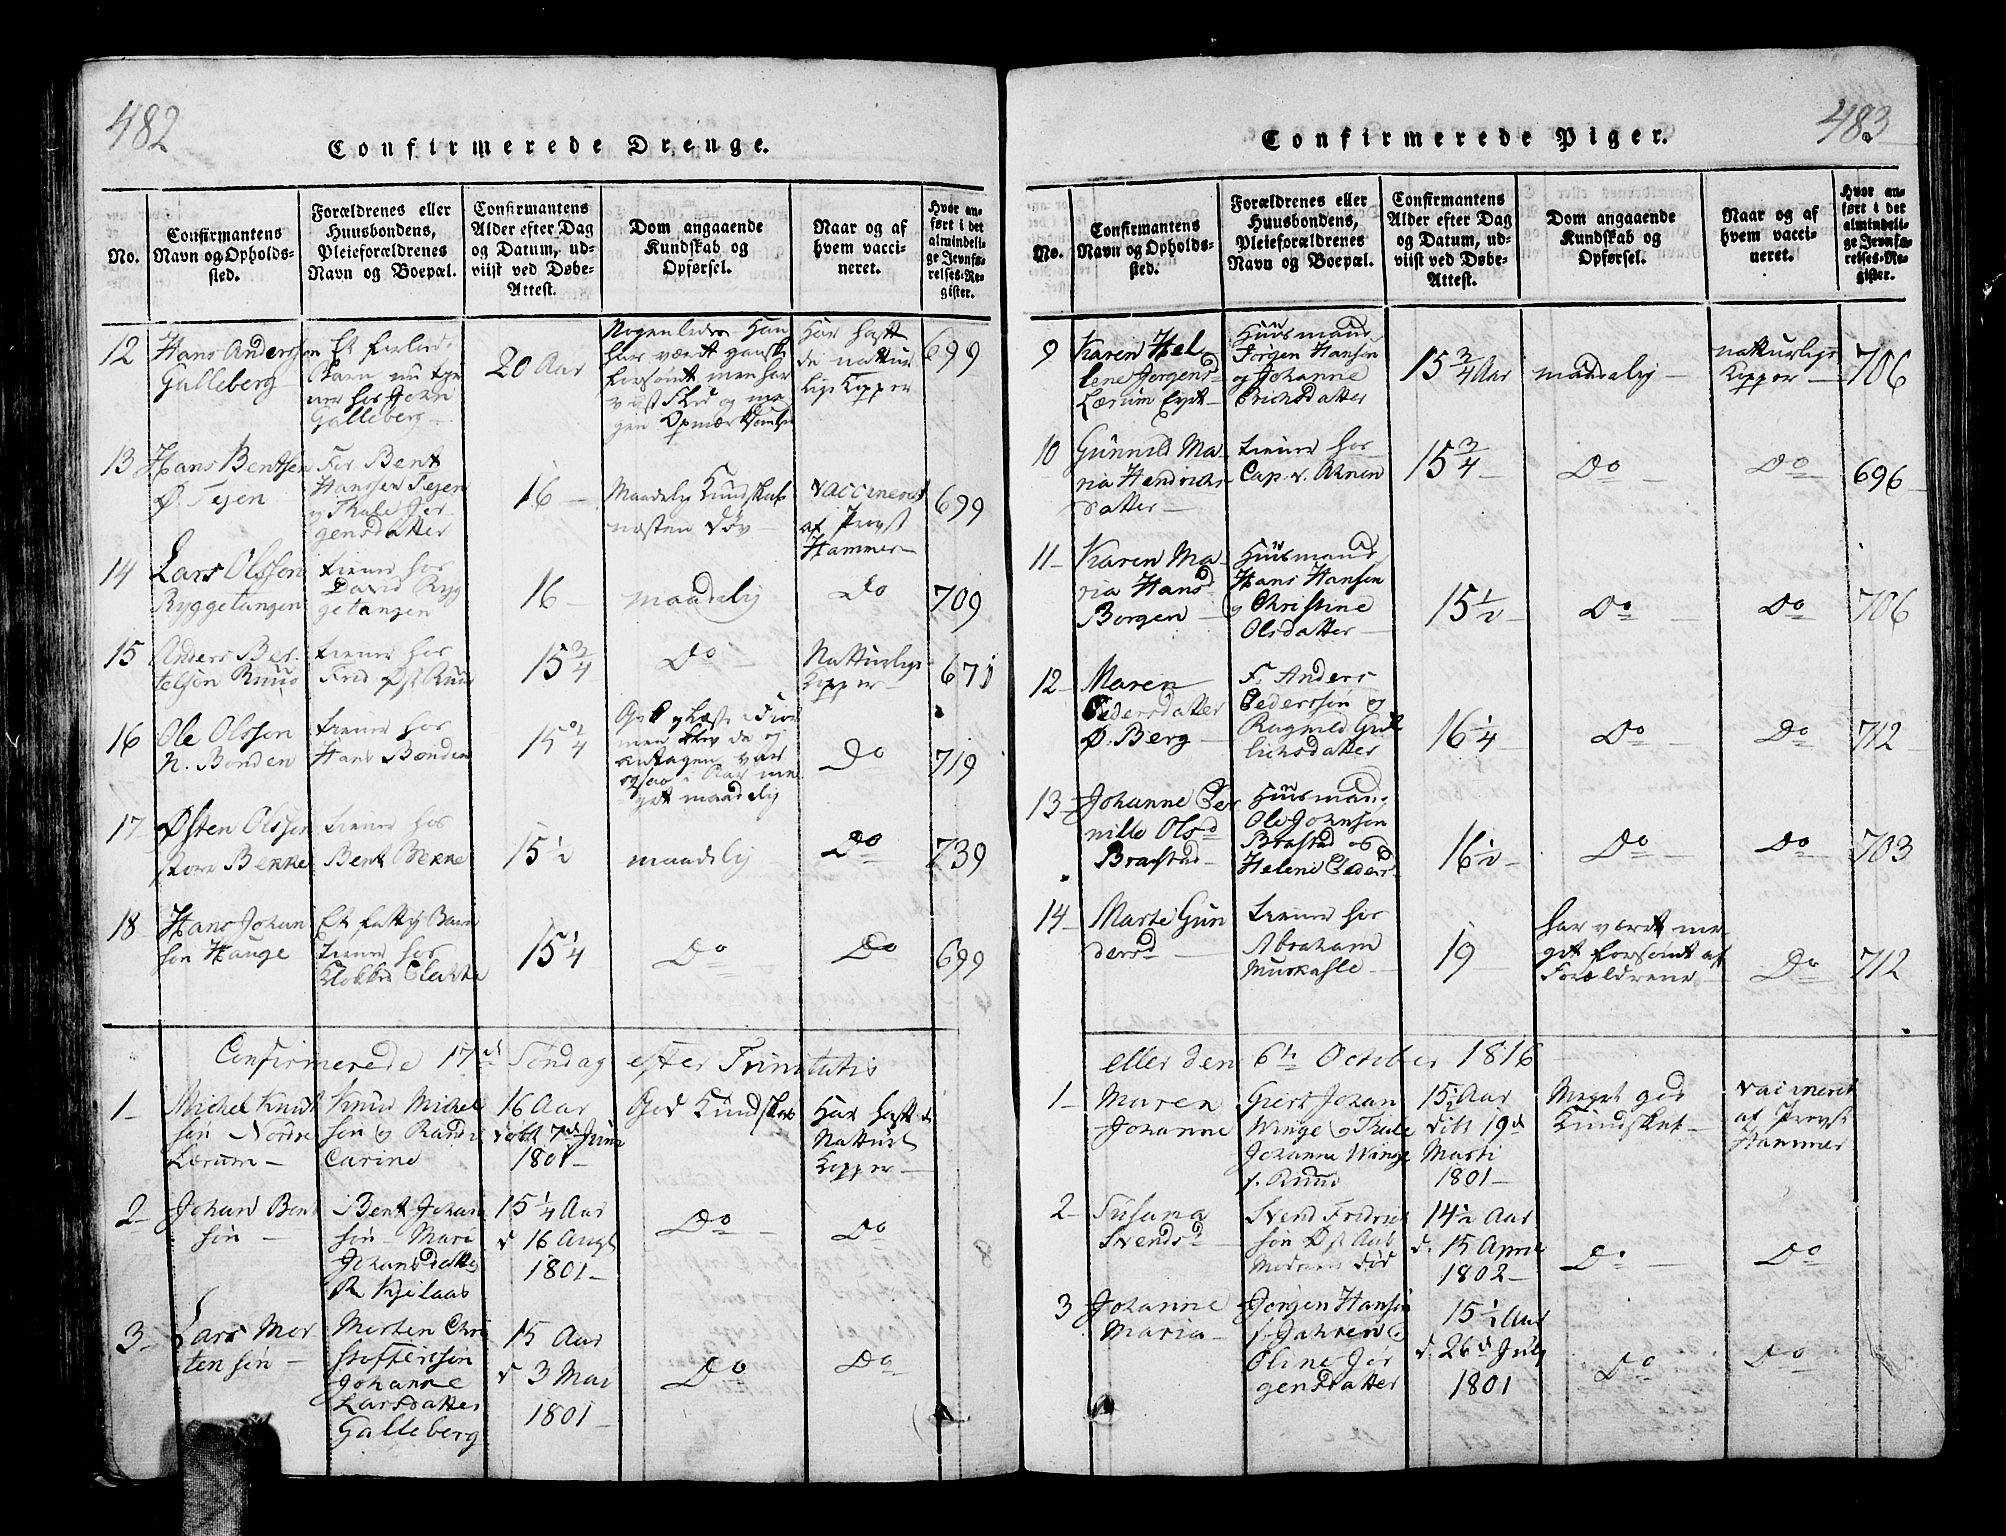 482
Confirmerede Drenge.
No.
Confirmantens
Navn og Opholds-
sted.
Forældrenes eller
Huusbondens,
Pleieforældrenes
Navn og Boepæl.
Confirmantens
Alder efter Dag
og Datum, ud-
viist ved Døbe-
Attest.
Dom angaaende
Kundskab og
Opførsel.
Naar og af
hvem vacci-
neret.
Hvor an-
ført i det
almindeli-
ge Jevnfø-
relses-Re-
gister.
12
Hans Anderssen
Galleberg
Et
Barn nu tje
ner hos John
Galleberg
20 Aar
Nogenledes Han
har været ganske
forsømt men har
viist Flid og me
gen Opmærksomhed
Har haft
de nattur
lige Kopper
699
13
Hans Bentsen
Ø. Tejen
For. Bent
Hanssen Tejen
og Thale Jør
gensdatter
16
Maadelig Kundskab
næsten døv
vaccineret
af Provst
Hammer
699
14
Lars Olssøn
Ryggetangen
tiener hos
David Ryg
getangen
16
maadelig
Do
709
15
Anders Ber
telsøn Ruus
tiener hos
15 3/4
Do
Natturlige
Kopper
671
16
Ole Olsson
N. Bonden
tiener hos
Hans Bonden
15
men blev da og
antagen var
ogsaa i Aar me
get maadelig
Do
719
17
Østen Olssøn
Bekke
tiener hos
Bent Bekke
15 1/2
maadelig
Do
739
18
Hans Johan
søn Hauge
Et fattig Barn
tiener hos
15 1/4
Do
Do
699
Confirmerede 17d Søndag efter Trinitatis
1
Michel Knut
søn Nordre
Lærum
Knud Michel
søn og Randi
Carine
16 Aar
døbt 7d Juni
1801
God Kundskab
Har haft de
Natturl
Kopper
2
Johan Bent
søn
Bent Johan
søn Mari
Johansdatter
15 1/4 Aar
d 16 Augt
1801
Do
Do
3
Lars Mor
tensøn
Morten Chri
stoffersøn
Johanne
Larsdatter
Galleberg
15 Aar
d 3 Mai
1801
Do
Do
483
Confirmerede Piger.
No.
Confirmantens
Navn og Opholds-
sted.
Forældrenes eller
Huusbondens,
Pleieforældrenes
Navn og Boepæl.
Confirmantens
Alder efter Dag
og Datum, ud-
viist ved Døbe-
Attest.
Dom angaaende
Kundskab og
Opførsel.
Naar og af
hvem vacci-
neret.
Hvor an-
ført i det
almindeli-
ge Jevnfø-
relses-Re-
gister.
9
Karen Hel
lene Jørgensd
Lærum Eyet
Huusmand
Jørgen Hansøn
og Johanne
Erichsdatter
15 3/4 Aar
maadelig
natturlige
Kopper
706
10
Gunnild Ma
ria Hendrichs
datter
tiener hos
Cap. v. Ahnen
15 3/4
Do
Do
696
11
Karen Ma
ria Hansd
Borgen
Huusmand
Hans Hansen
og Christine
Olsdatter
15 1/2
Do
Do
706
12
Maren
Pedersdatter
Ø. Berg
F. Anders
Pederssøn og
Ragnild Gul
lichsdatter
16 1/4
Do
Do
712
13
Johanne Per
nille Olsd
Braastad
Huusmand
Ole Johnsøn
Brastad og
Helene Peders
16 1/2
Do
Do
703
14
Marte Gun
dersd
tiener hos
Abraham
19
har været me
get forsømt af
Forældrene
Do
712
eller den 6te October 1816
1
Maren
Johanne
Giert Johan
Winge og Thale
Johanne Winge
f. Ruus
15 1/2 Aar
døbt 19d
Marti
1801
Meget god
Kundskab
vaccineret
af Provst
Hammer
2
Susana
Svendsd
Svend Fridrich
søn Øst Aas
Moderen død
14 1/2 Aar
d. 15 April
1802
Do
Do
3
Johanne
Maria
Jørgen Hansøn
Oline Jør
gensdatter
15 1/2 Aar
d. 26d July
1801
Do
Do